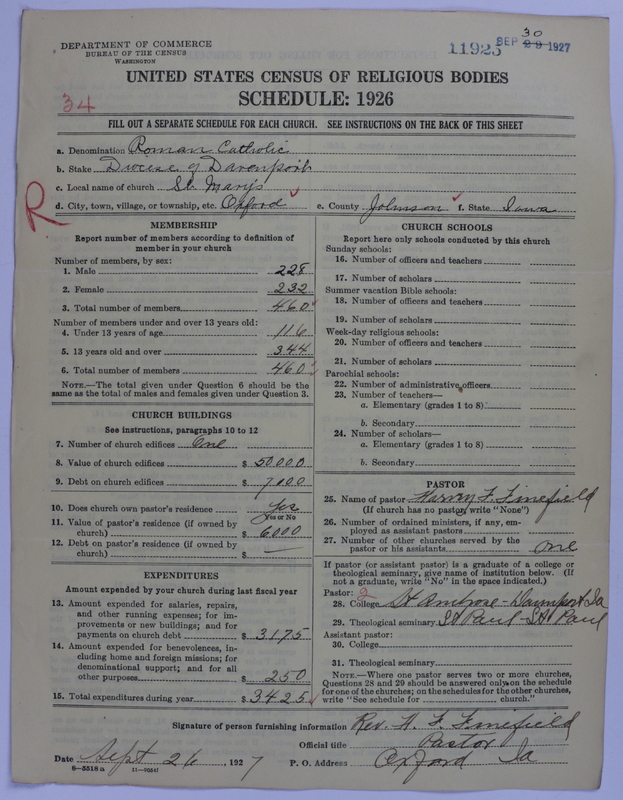 DEPARTMENT OF COMMERCE
BUREAU OF THE CENSUS
WASHINGTON
11923 SEP 29 1927
30
UNITED STATES CENSUS OF RELIGIOUS BODIES
34
SCHEDULE: 1926
FILL OUT A SEPARATE SCHEDULE FOR EACH CHURCH. SEE INSTRUCTIONS ON THE BACK OF THIS SHEET
a. Denomination Roman Catholic
b. Stake Diocese of Davenport
c. Local name of church St. Mary's
d. City, town, village, or township, etc. Oxford e. County Johnson f. State Iowa
R
MEMBERSHIP
Report number of members according to definition of
member in your church
Number of members, by sex:
1. Male 228
2. Female 232
3. Total number of members 460
Number of members under and over 13 years old:
4. Under 13 years of age 116
5. 13 years old and over 344
6. Total number of members 460
NOTE.—The total given under Question 6 should be
same as the total of males and females given under Question 3.
CHURCH BUILDINGS
See instructions, paragraphs 10 to 12
7. Number of church edifices One
8. Value of church edifices $ 50000
9. Debt on church edifices $ 7100
10. Does church own pastor's residence Yes
Yes or No
11. Value of pastor's residence (if owned by
church) $ 6000
12. Debt on pastor's residence (if owned by
church) $ —
EXPENDITURES
Amount expended by your church during last fiscal year
13. Amount expended for salaries, repairs,
and other running expenses; for im-
provements or new buildings; and for
payments on church debt $ 3175
14. Amount expended for benevolences, in-
cluding home and foreign missions; for
denominational support; and for all
other purposes $ 250
15. Total expenditures during year $ 3425
CHURCH SCHOOLS
Report here only schools conducted by this church
Sunday schools:
16. Number of officers and teachers
17. Number of scholars
Summer vacation Bible schools:
18. Number of officers and teachers
19. Number of scholars
Week-day religious schools:
20. Number of officers and teachers
21. Number of scholars
Parochial schools:
22. Number of administrative officers
23. Number of teachers—
a. Elementary (grades 1 to 8)
b. Secondary
24. Number of scholars—
a. Elementary (grades 1 to 8)
b. Secondary
PASTOR
25. Name of pastor Harvey F. Finefield
(If church has no pastor, write "None")
26. Number of ordained ministers, if any, em-
ployed as assistant pastors
27. Number of other churches served by the
pastor or his assistants one
If pastor (or assistant pastor) is a graduate of a college or
theological seminary, give name of institution below. (If
not a graduate, write "No" in the space indicated.)
Pastor: 2
28. College St Ambrose - Davenport Ia
29. Theological seminary St Paul - St Paul
Assistant pastor:
30. College
31. Theological seminary
NOTE.—Where one pastor serves two or more churches,
Questions 28 and 29 should be answered only on the schedule
for one of the churches; on the schedules for the other churches,
write "See schedule for church."
Signature of person furnishing information Rev. H. F. Finefield
Official title Pastor
Date Sept 26, 1927 P. O. Address Oxford Ia
6—5518a